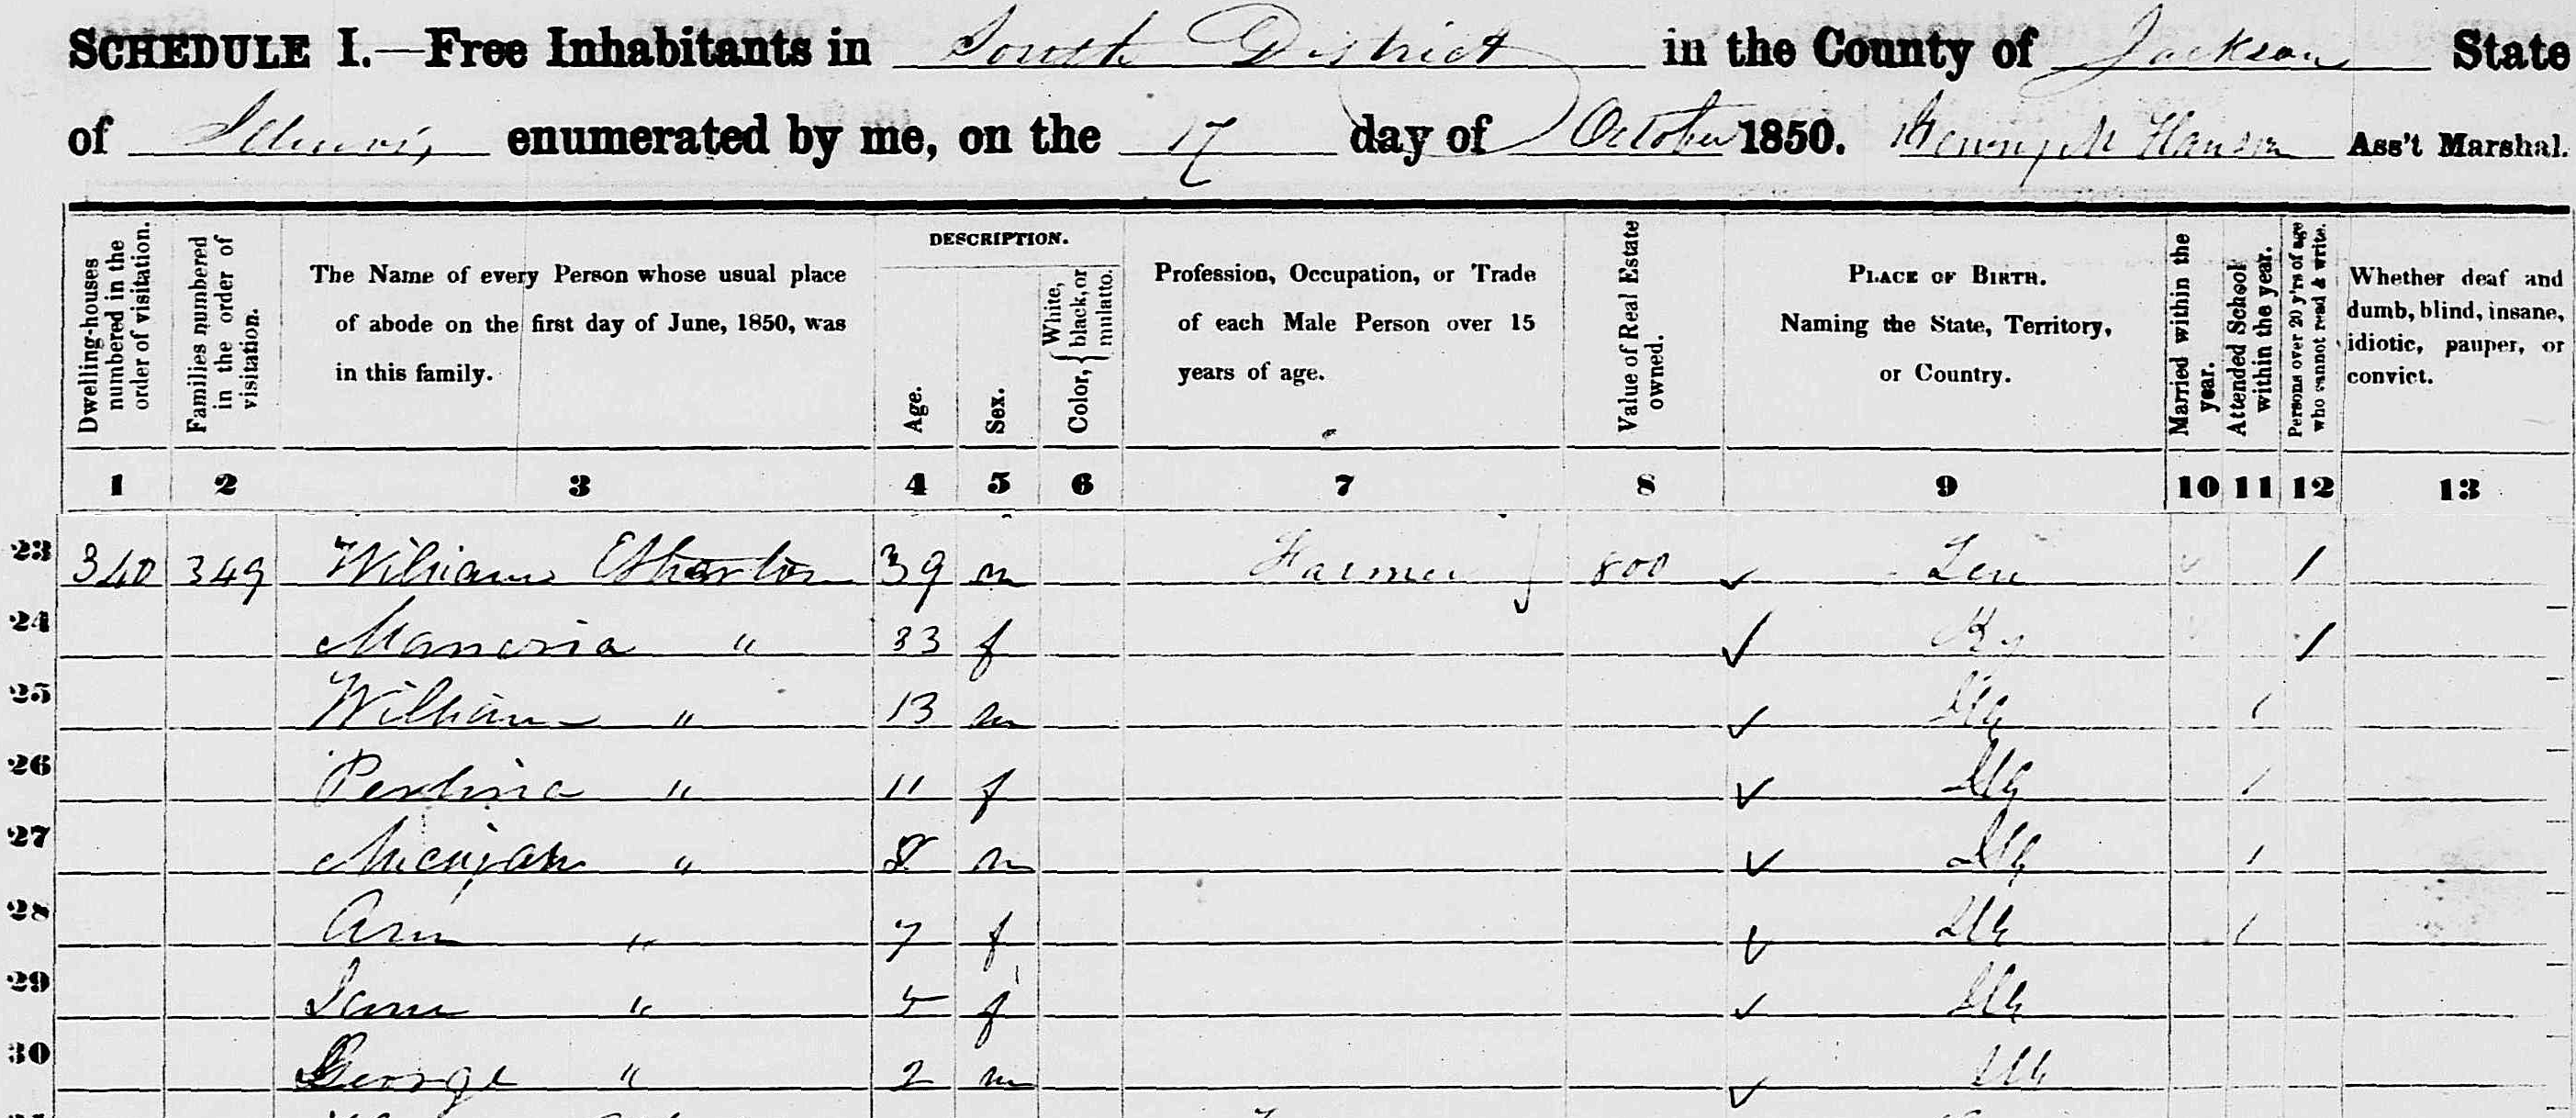 SCHEDULE I.—Free Inhabitants in South District in the County of Jackson State
of Illinois enumerated by me, on the 17 day of October 1850. Ass't Marshal.
Dwelling-houses numbered in the order of visitation.
Families numbered in the order of visitation.
The Name of every Person whose usual place of abode on the first day of June, 1850, was in this family.
DESCRIPTION.
Age.
Sex.
Color, { White, black, or mulatto.
Profession, Occupation, or Trade of each Male Person over 15 years of age.
Value of Real Estate owned.
PLACE OF BIRTH. Naming the State, Territory, or Country.
Married within the year.
Attended School within the year.
Persons over 20 y'rs of age who cannot read & write.
Whether deaf and dumb, blind, insane, idiotic, pauper, or convict.
1 2 3 4 5 6 7 8 9 10 11 12 13
23 340 349 William Etharton 39 m Farmer 800 ✓ Ten 1
24 " 33 f ✓ Ky 1
25 William " 13 m ✓ Ills 1
26 Perlina " 11 f ✓ Ills 1
27 Micajah " 8 m ✓ Ills 1
28 Ann " 7 f ✓ Ills 1
29 Jane " 5 f ✓ Ills
30 George " 2 m ✓ Ills